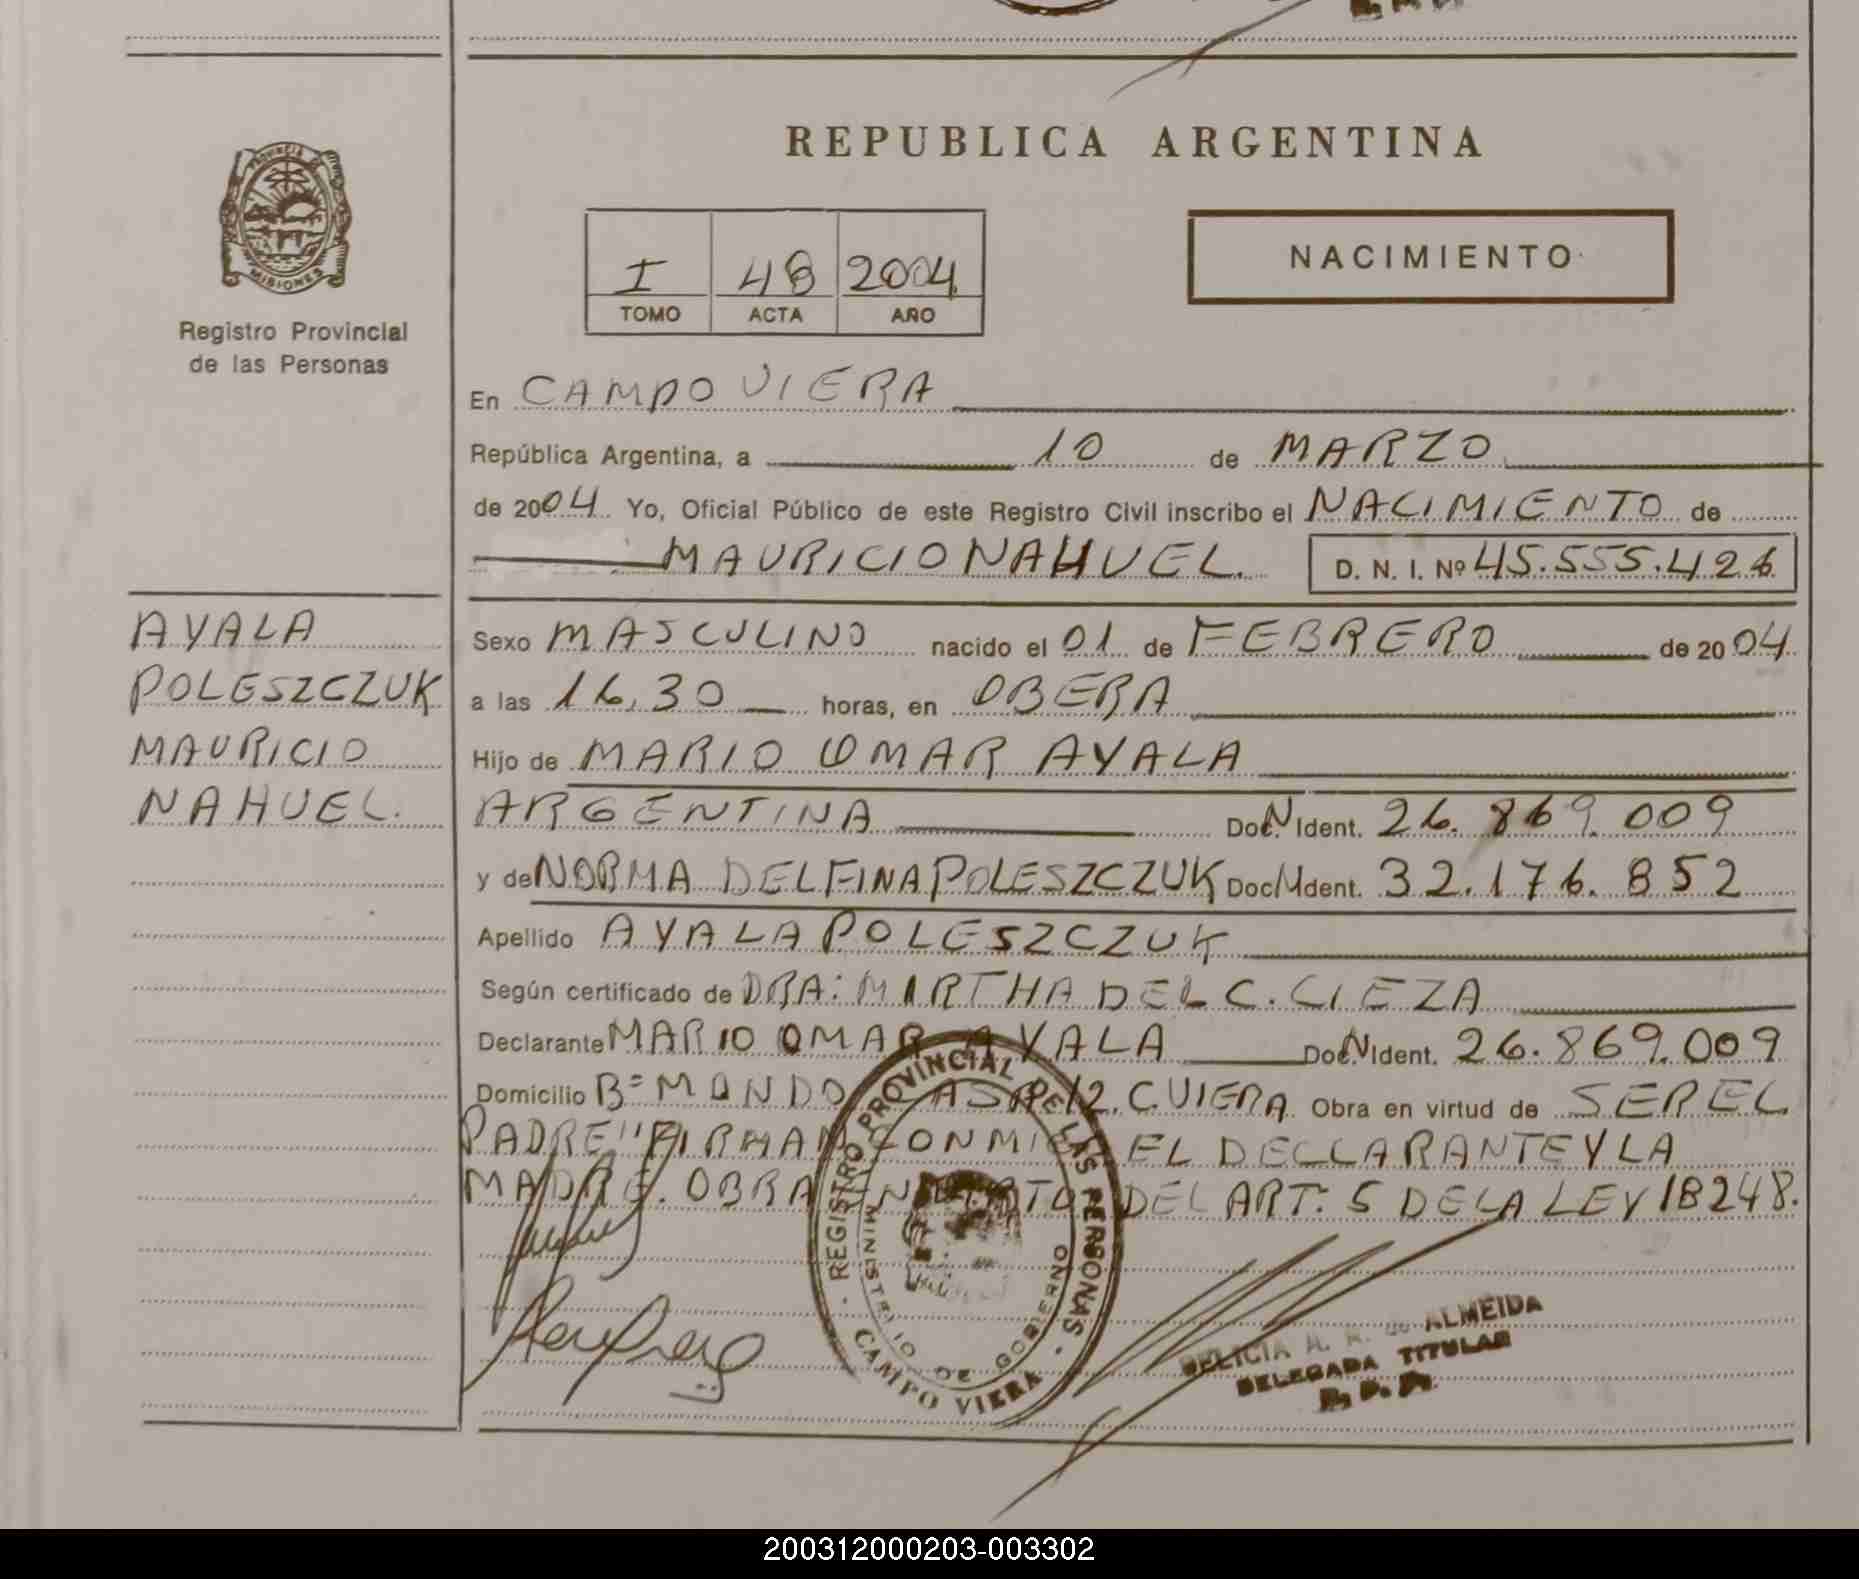 REPUBLICA ARGENTINA
PROVINCIA DE
MISIONES
Registro Provincial
de las Personas
I 48 2004
TOMO ACTA AÑO
NACIMIENTO
En CAMPO VIERA
República Argentina, a 10 de MARZO
de 2004 Yo, Oficial Público de este Registro Civil inscribo el NACIMIENTO de
MAURICIO NAHUEL. D. N. I. Nº 45.555.426
AYALA
POLESZCZUK
MAURICIO
NAHUEL.
Sexo MASCULINO nacido el 01 de FEBRERO de 2004
a las 16,30 horas, en OBERA
Hijo de MARIO OMAR AYALA
ARGENTINA Doc.N Ident. 26.869.009
y de NORMA DELFINA POLESZCZUK Doc.N Ident. 32.176.852
Apellido AYALA POLESZCZUK
Según certificado de DRA: MIRTHA DEL C. CIEZA
Declarante MARIO OMAR AYALA Doc.N Ident. 26.869.009
Domicilio Bº MONDO 12. C. VIERA Obra en virtud de SER EL
PADRE" FIRMAN CONMIGO EL DECLARANTE Y LA
MADRE. OBRA DEL ART: 5 DE LA LEY 18248.
REGISTRO PROVINCIAL DE LAS PERSONAS
MINISTERIO DE GOBIERNO
CAMPO VIERA
ALMEIDA
DELEGADA TITULAR
R.P.P.
200312000203-003302